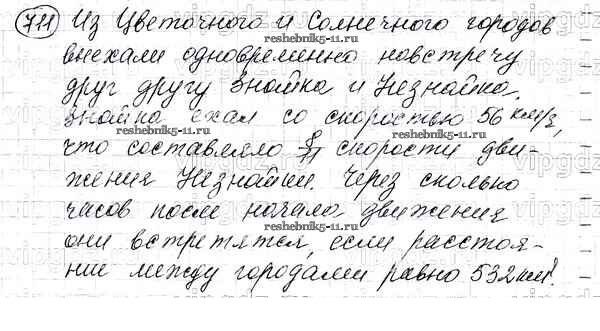 711 Из Цветочного и Солнечного городов
выехали одновременно навстречу
reshebnik5-11.ru
друг другу Знайка и Незнайка.
Знайка ехал со скоростью 56 км/ч,
reshebnik5-11.ru
что составляло 8/11 скорости дви-
жения Незнайки. Через сколько
часов после начала движения
reshebnik5-11.ru
они встретятся, если расстоя-
ние между городами равно 532 км?